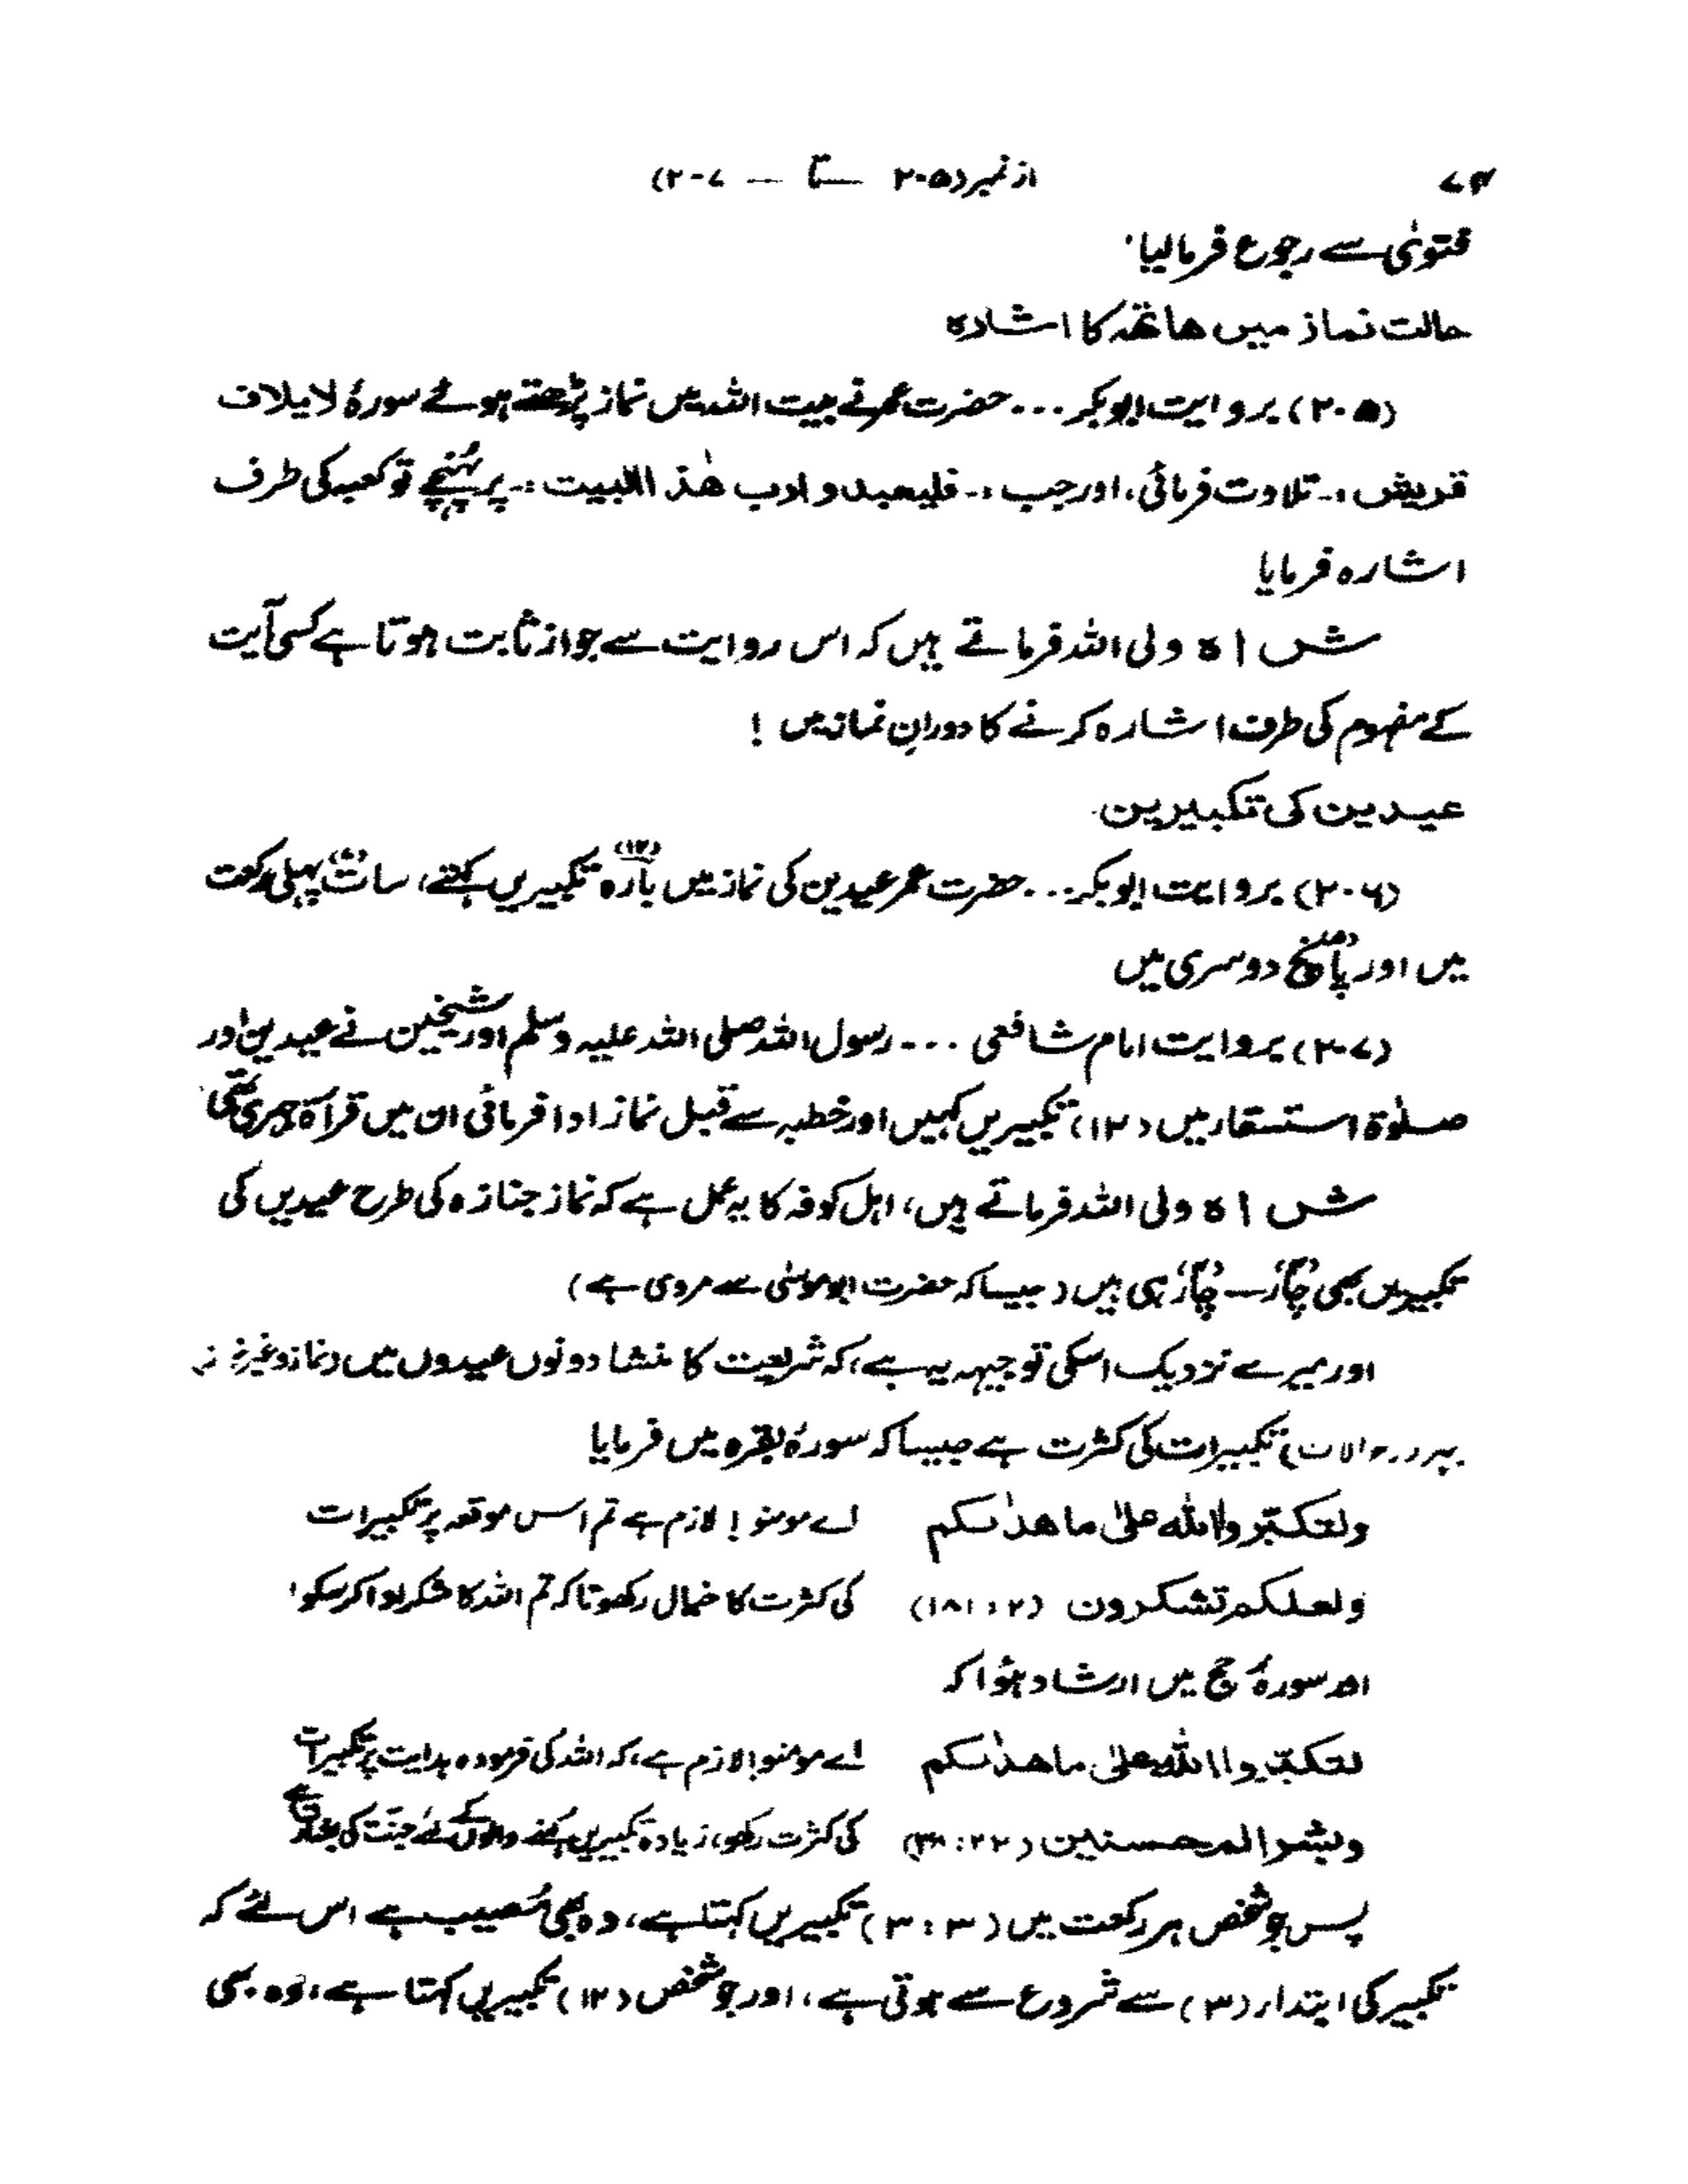 ۷۴ از نمبر (۲۰۵ تا — ۲۰۷)
فتویٰ سے رجوع فرمالیا'
حالت نماز میں ھاتھ کا اشارہ
(۲۰۵) بروایت ابوبکر ... حضرت عمر نے بیت اللہ میں نماز پڑھتے ہوئے سورۂ لایلاف
قریش :۔ تلاوت فرمائی، اور جب :۔ فلیعبدوا رب ھٰذا البیت :۔ پر پہنچے تو کعبہ کی طرف
اشارہ فرمایا
شاہ ولی اللہ فرماتے ہیں کہ اس روایت سے جواز ثابت ہوتا ہے کسی آیت
کے مفہوم کی طرف اشارہ کرنے کا دورانِ نماز میں !
عیدین کی تکبیریں
(۲۰۶) بروایت ابوبکر ... حضرت عمر عیدین کی نماز میں بارہ (۱۲) تکبیریں کہتے، سات پہلی رکعت
میں اور پانچ دوسری میں
(۲۰۷) بروایت امام شافعی ... رسول اللہ صلی اللہ علیہ وسلم اور شیخین نے عیدین اور
صلوٰۃ استسقاء میں (۱۲) تکبیریں کہیں اور خطبہ سے قبل نماز ادا فرمائی ان میں قرآۃ جہری تھی
شاہ ولی اللہ فرماتے ہیں، اہل کوفہ کا یہ عمل ہے کہ نماز جنازہ کی طرح عیدین کی
تکبیریں بھی چار چار ہی ہیں (جیسا کہ حضرت ابوموسٰی سے مروی ہے)
اور میرے نزدیک اسکی توجیہہ یہ ہے، کہ شریعت کا منشا دونوں عیدوں میں (نماز وغیرہ
تکبیرات کی کثرت ہے جیسا کہ سورۂ بقرہ میں فرمایا
ولتکبّروا اللہ علیٰ ما ھدٰىکم اے مومنو! لازم ہے تم اس موقعہ پر تکبیرات
ولعلکم تشکرون (۲: ۱۸۱) کی کثرت کا خیال رکھو تاکہ تم اللہ کا شکر ادا کر سکو'
اور سورۂ حج میں ارشاد ہُوا کہ
لتکبّروا اللہ علیٰ ما ھدٰىکم اے مومنو! لازم ہے، کہ اللہ کی فرمودہ ہدایت پر تکبیرات
وبشر المحسنین (۲۲: ۳۸) کی کثرت رکھو، زیادہ تکبیریں کہنے والوں کے لئے جنت کی بشارت ہے
پس جو شخص ہر رکعت میں (۳: ۳) تکبیریں کہتا ہے، وہ بھی مُصیب ہے اس لئے کہ
تکبیر کی ابتداء (۳) سے شروع سے ہوتی ہے، اور جو شخص (۱۲) تکبیریں کہتا ہے، وہ بھی